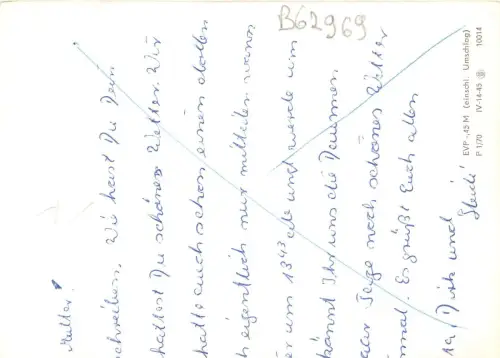 B62969
Mutter!
schreiben. Wie hast Du Dein
hattest Du schönes Wetter. Wir
hatte euch schon einen
eigentlich nur mitteilen wann
er um 13 43 ab und werde um
könnt Ihr uns die Daumen
paar Tage noch schönes Wetter
mal. Es grüßt Euch allen
und
EVP -,45 M (einschl. Umschlag)
P 1/70 IV-14-45 10014